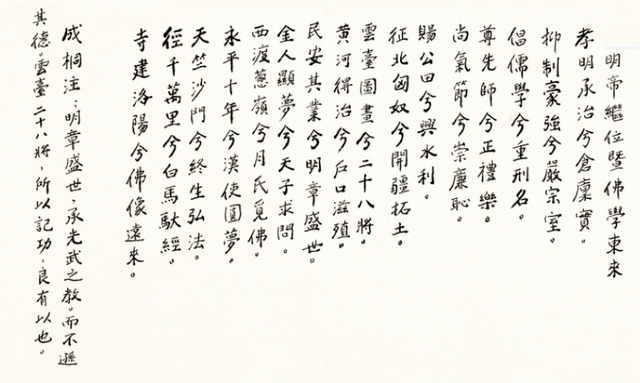 明帝繼位暨佛學東來
孝明承治兮倉廩實。
抑制豪強兮嚴宗室。
倡儒學兮重刑名。
尊先師兮正禮樂。
尚氣節兮崇廉恥。
賜公田兮興水利。
征北匈奴兮開疆拓土。
雲臺圖畫兮二十八將。
黃河得治兮戶口滋殖。
民安其業兮明章盛世。
金人顯夢兮天子求問。
西渡蔥嶺兮月氏覓佛。
永平十年兮漢使圓夢。
天竺沙門兮終生弘法。
徑千萬里兮白馬馱經。
寺建洛陽兮佛像遠來。
成桐注：明章盛世，承光武之教。而不遜
其德。雲臺二十八將，所以記功，良有以也。